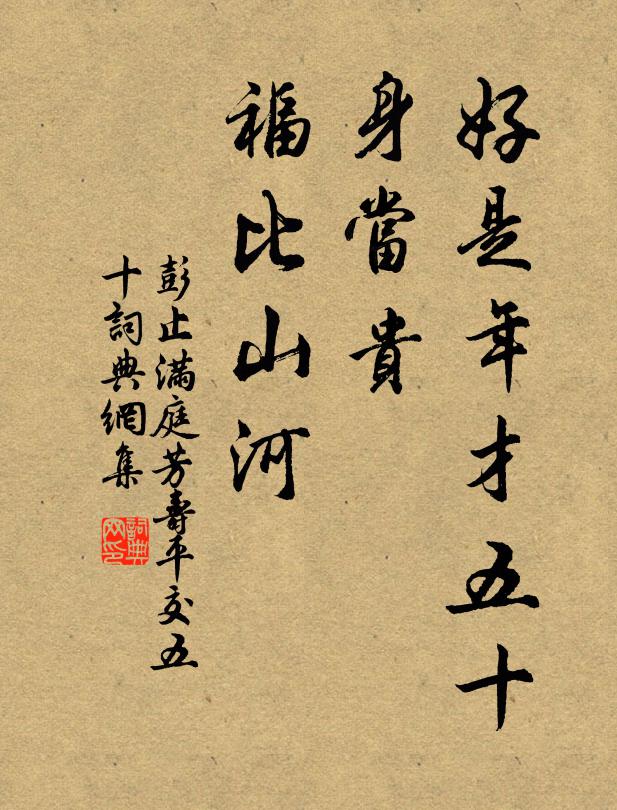 好是年才五十
身當貴
福比山河
彭止滿庭芳壽平交五
十詞典網集
詞典
网印